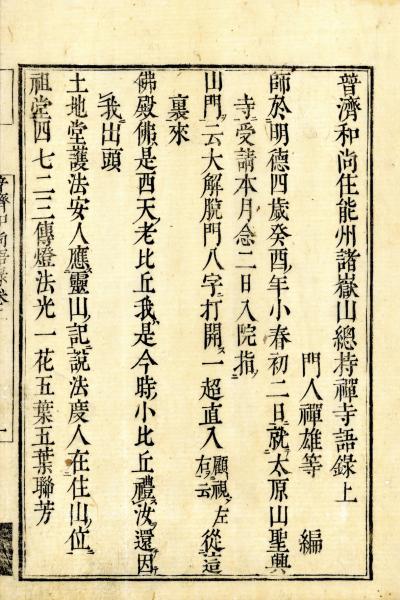 普濟和尚住能州諸嶽山總持禪寺語錄上
門人禪雄等 編
師於明德四歲癸酉年小春初二日就太原山聖興
寺受請本月念二日入院指
山門云大解脫門八字打開一超直入顧視左右云從這
裏來
佛殿佛是西天老比丘我是今時小比丘禮汝還因
我出頭
土地堂護法安人應靈山記說法度人在住山位
祖堂四七二三傳燈法光一花五葉五葉聯芳